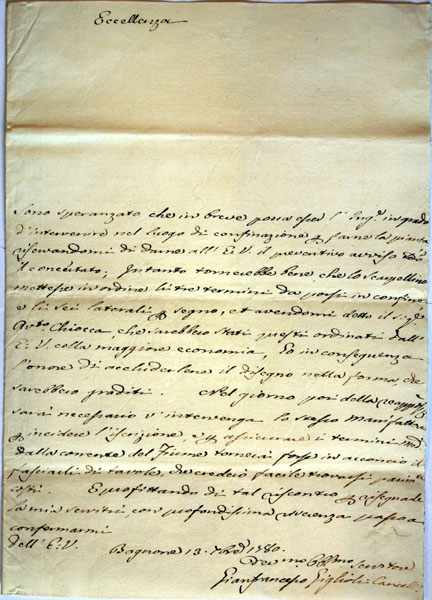 Eccellenza
Sono speranzato che in breve possa esser l' Ing.e in grado
d'intervenire nel luogo di confinazione p farne la pianta
riservandomi di darne all' E.V. il preventivo avviso
il concertato; Intanto tornerebbe bene, che lo scarpellino
mettesse in ordine li tre termini da porsi in confine
e li sei laterali p segno, et avendomi detto il sig.e
Ant.o Chiocca, che sarebbero stati questi ordinati dall'
E.V. colla maggiore economia, Io in conseguenza
l'onore di accluderleno il disegno nella forma che
sarebbero graditi. Nel giorno poi della
sarà necessario v' intervenga lo stesso Manifattore
p incidere l'iscrizione, e p assicurare i termini
dalla corrente del fiume tornerà forse in acconcio di
fasciarli di tavole, che crederò facile trovarsi
costì. E profittando di tal riscontro p rassegnarle
la mia servitù con profondissima riverenza passo a
confermarmi
dell' E.V.
Bagnone 13. 1780.
Dev.mo Obb.mo Servitore
Gianfrancesco Giglioli